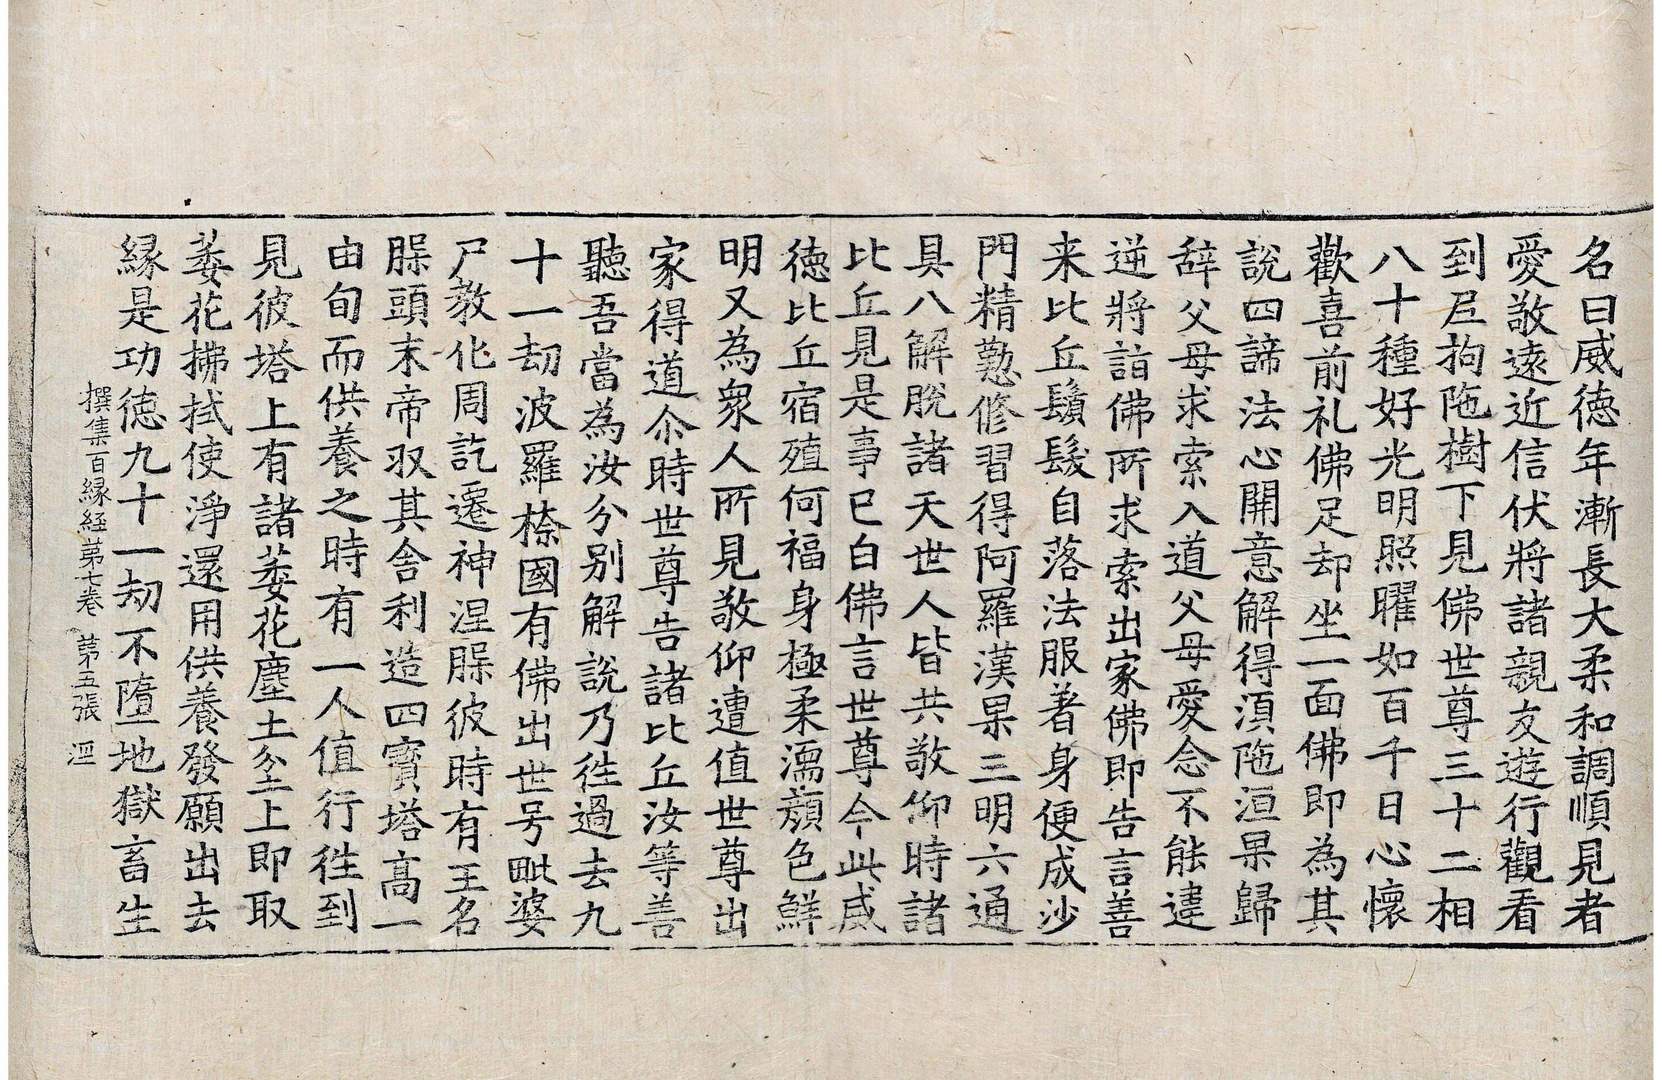 名曰威徳年漸長大柔和調順見者
愛敬遠近信伏將諸親友遊行觀看
到尼拘陁樹下見佛世尊三十二相
八十種好光明照曜如百千日心懷
歡喜前礼佛足却坐一面佛即為其
說四諦法心開意解得湏陁洹果歸
辞父母求索入道父母愛念不能違
逆將詣佛所求索出家佛即告言善
来比丘鬚髮自落法服著身便成沙
門精懃修習得阿羅漢果三明六通
具八解脫諸天世人皆共敬仰時諸
比丘見是事已白佛言世尊今此威
徳比丘宿殖何福身極柔濡顔色鮮
明又為衆人所見敬仰遭值世尊出
家得道尒時世尊告諸比丘汝等善
聽吾當為汝分別解說乃徃過去九
十一劫波羅㮈國有佛出世号毗婆
尸教化周訖遷神涅脲彼時有王名
脲頭末帝収其舍利造四寳塔高一
由旬而供養之時有一人值行徃到
見彼塔上有諸萎花塵土坌上即取
萎花拂拭使淨還用供養發願出去
縁是功徳九十一劫不墮地獄畜生
撰集百縁経苐七卷 苐五張 𣴓